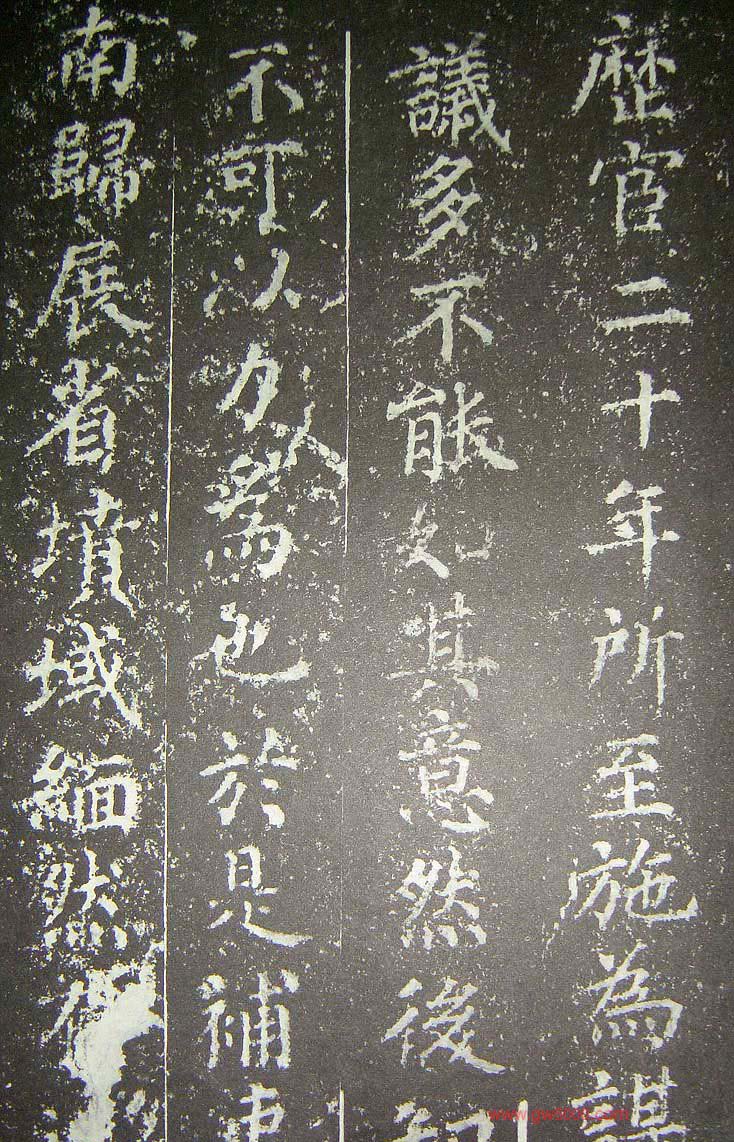 歷宦二十年所至施為謀
議多不能如其意然後知
不可以力爲也於是補
南歸展省墳域緬然